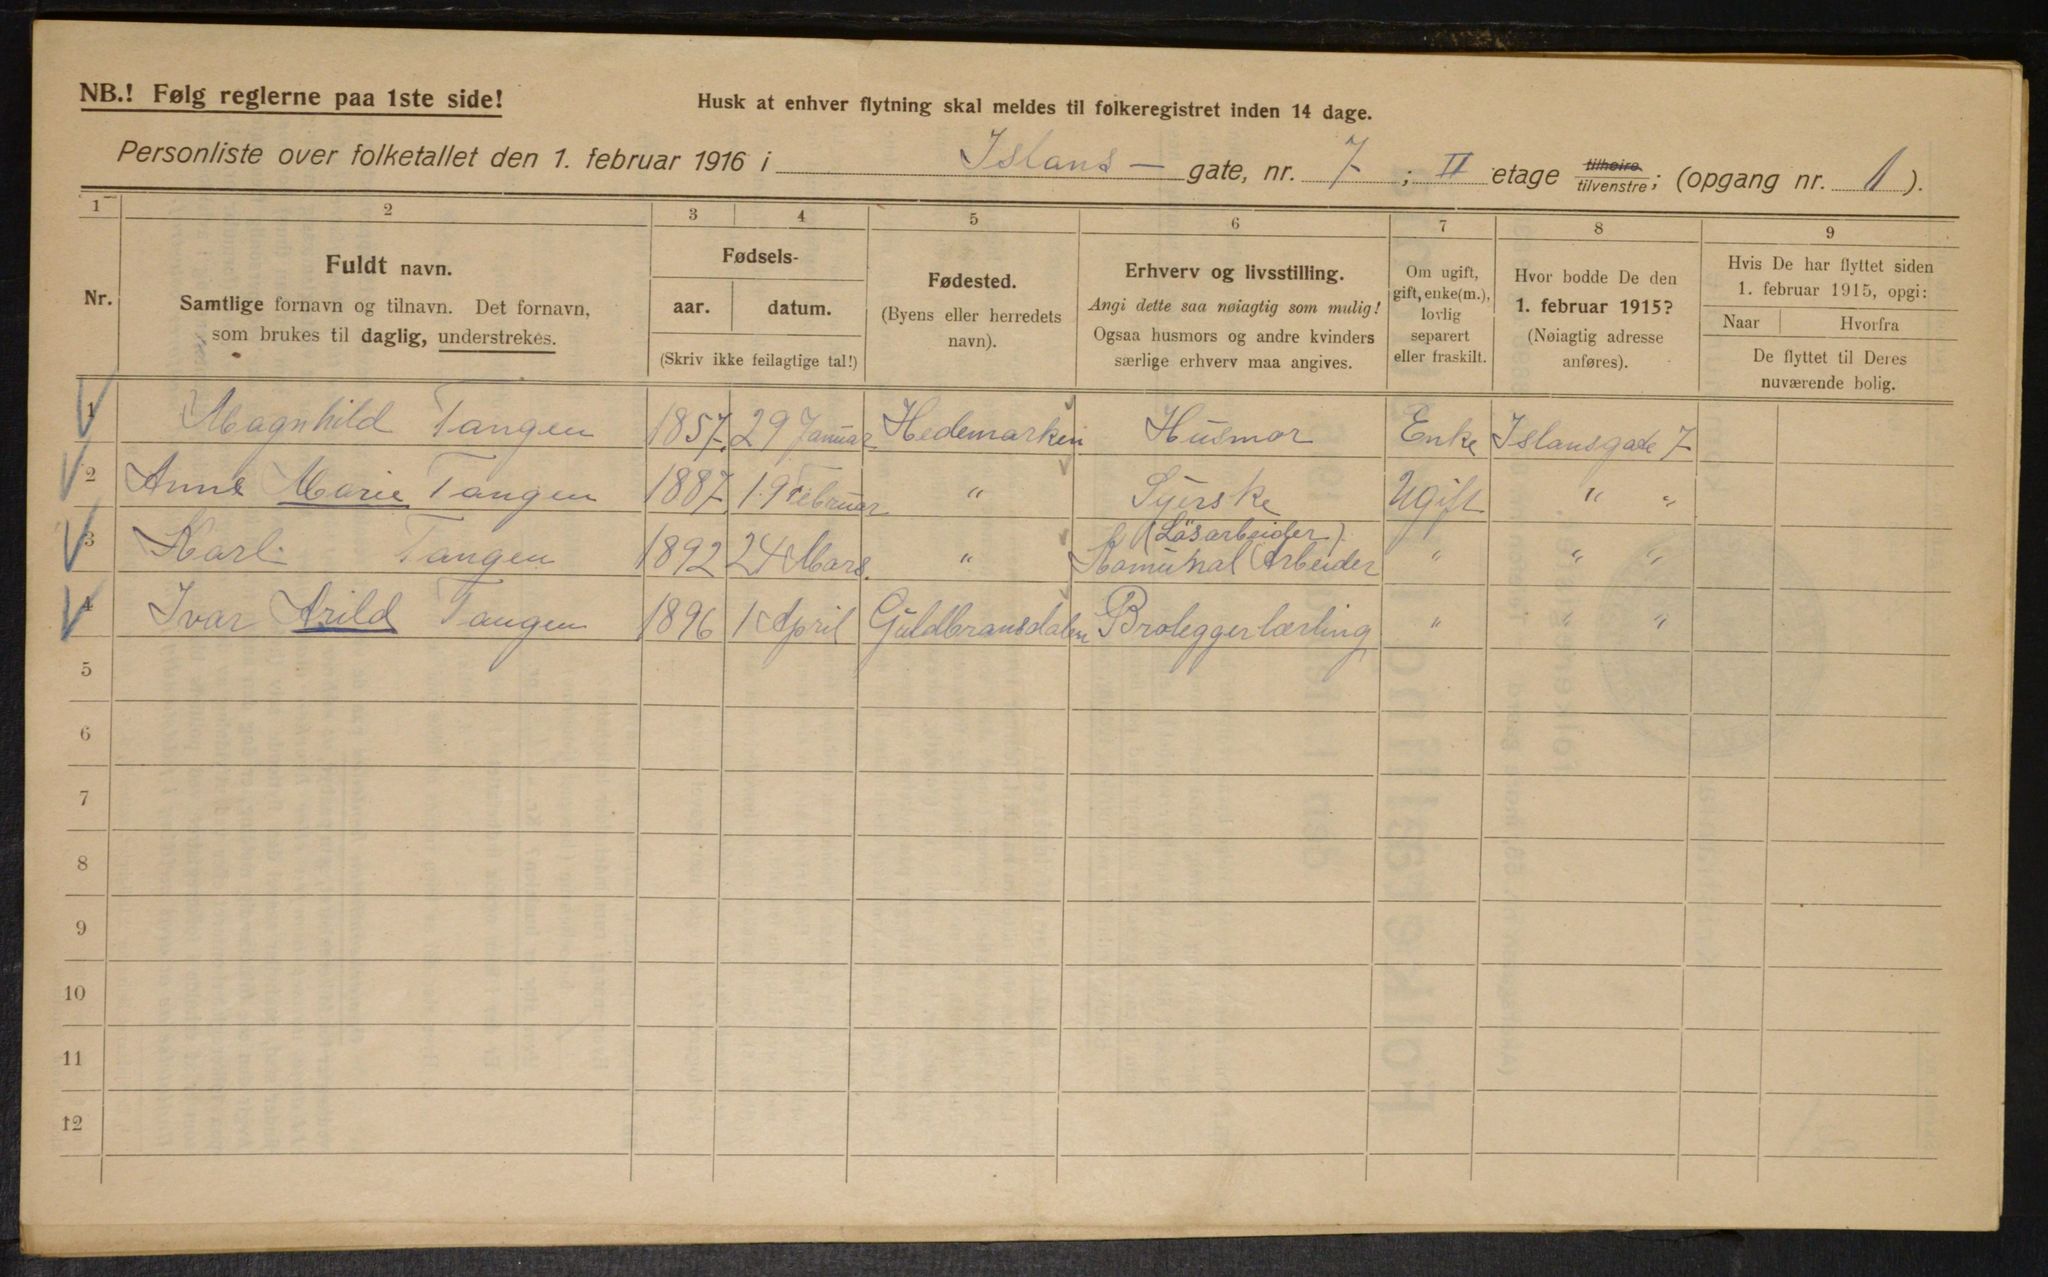 NB.! Følg reglerne paa 1ste side!
Husk at enhver flytning skal meldes til folkeregistret inden 14 dage.
Personliste over folketallet den 1. februar 1916 i Islans - gate, nr. 7 ; II etage tilhøire tilvenstre; (opgang nr. 1 ).
1 2 3 4 5 6 7 8 9
Nr.
Fuldt navn.
Samtlige fornavn og tilnavn. Det fornavn,
som brukes til daglig, understrekes.
Fødsels-
aar. datum.
(Skriv ikke feilagtige tal!)
Fødested.
(Byens eller herredets
navn).
Erhverv og livsstilling.
Angi dette saa nøiagtig som mulig!
Ogsaa husmors og andre kvinders
særlige erhverv maa angives.
Om ugift,
gift, enke(m.),
lovlig
separert
eller fraskilt.
Hvor bodde De den
1. februar 1915?
(Nøiagtig adresse
anføres).
Hvis De har flyttet siden
1. februar 1915, opgi:
Naar Hvorfra
De flyttet til Deres
nuværende bolig.
1 Magnhild Tangen 1857. 29 Januar Hedemarken Husmor Enke Islansgade 7
2 Anne Marie Tangen 1887. 19 Februar " Syerske Ugift " "
3 Karl Tangen 1892 24 Mars. " (Løsarbeider)
Komunal Arbeider " " "
4 Ivar Arild Tangen 1896 1 April Guldbransdalen Broleggerlærling " " "
5
6
7
8
9
10
11
12